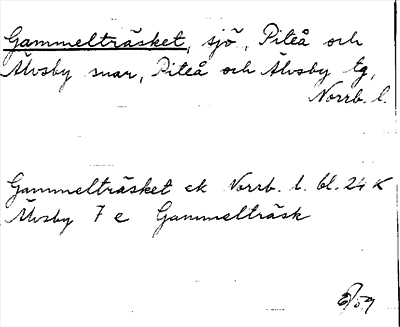 Gammelträsket, sjö, Piteå och
Älvsby snar, Piteå och Älvsby tg,
Norrb. l.
Gammelträsket ek Norrb. l. bl. 24 K
Älvsby 7 e Gammelträsk